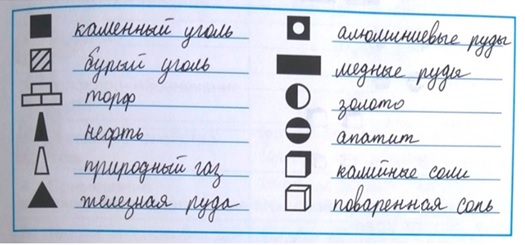 каменный уголь
бурый уголь
торф
нефть
природный газ
железная руда
алюминиевые руды
медные руды
золото
апатит
калийные соли
поваренная соль